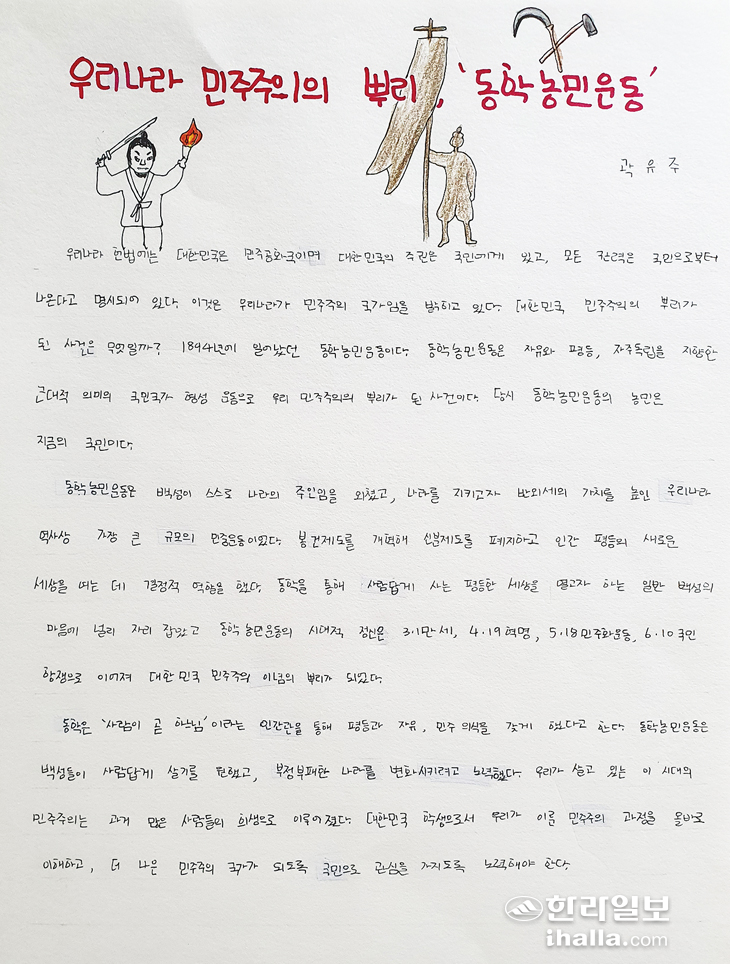 우리나라 민주주의의 뿌리, '동학농민운동'
곽유주
우리나라 헌법에는 대한민국은 민주공화국이며 대한민국의 주권은 국민에게 있고, 모든 권력은 국민으로부터
나온다고 명시되어 있다. 이것은 우리나라가 민주주의 국가임을 밝히고 있다. 대한민국 민주주의의 뿌리가
된 사건은 무엇일까? 1894년에 일어났던 동학농민운동이다. 동학농민운동은 자유와 평등, 자주독립을 지향한
근대적 의미의 국민국가 형성 운동으로 우리 민주주의의 뿌리가 된 사건이다. 당시 동학농민운동의 농민은
지금의 국민이다.
동학농민운동은 백성이 스스로 나라의 주인임을 외쳤고, 나라를 지키고자 반외세의 가치를 높인 우리나라
역사상 가장 큰 규모의 민중운동이었다. 봉건제도를 개혁해 신분제도를 폐지하고 인간 평등의 새로운
세상을 여는 데 결정적 역할을 했다. 동학을 통해 사람답게 사는 평등한 세상을 열고자 하는 일반 백성의
마음에 널리 자리 잡았고 동학농민운동의 시대적 정신은 3·1만세, 4·19혁명, 5·18민주화운동, 6·10국민
항쟁으로 이어져 대한민국 민주주의 이념의 뿌리가 되었다.
동학은 '사람이 곧 하느님'이라는 인간관을 통해 평등과 자유, 민주 의식을 갖게 했다고 한다. 동학농민운동은
백성들이 사람답게 살기를 원했고, 부정부패한 나라를 변화시키려고 노력했다. 우리가 살고 있는 이 시대의
민주주의는 과거 많은 사람들의 희생으로 이루어졌다. 대한민국 학생으로서 우리가 이룬 민주주의 과정을 올바로
이해하고, 더 나은 민주주의 국가가 되도록 국민으로 관심을 가지도록 노력해야 한다.
한라일보
ihalla.com